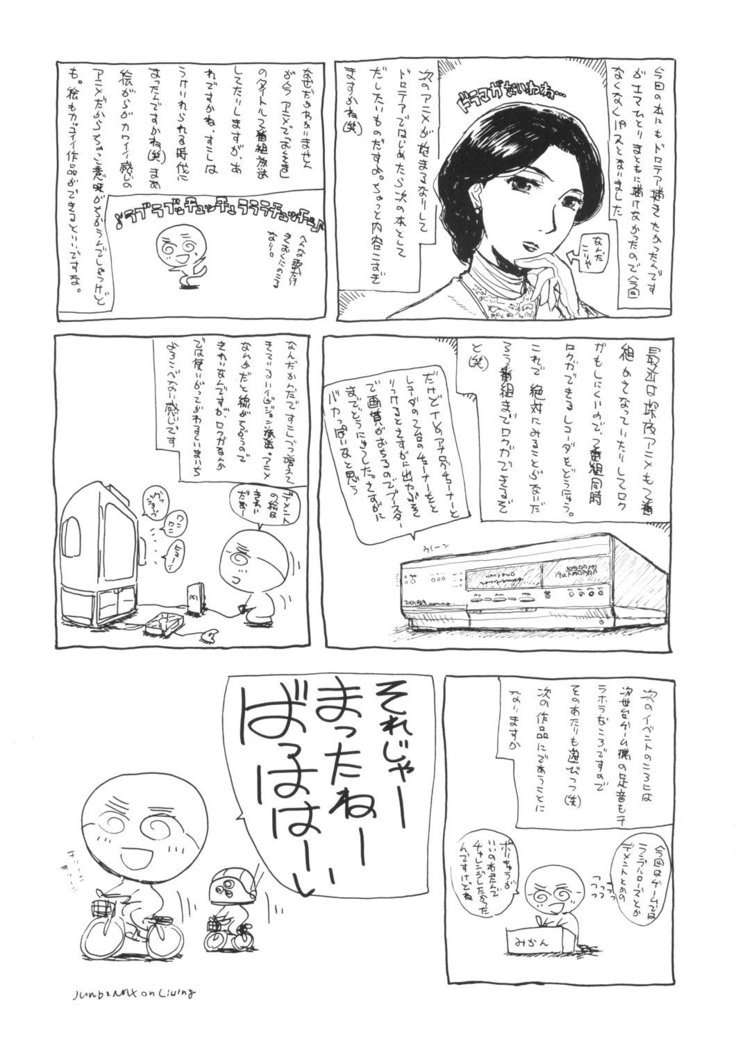 今回の本にもドロテア描きたかったんです
がエマひとりまともに描けなかったので今回
なくなくパスとなりました
ドラマガないわね…
なんだ
こりゃ
次のアニメが始まるなりして
ドロテアではじめたら次の本として
だしたいものですなちょっと内容こなぎ
ますかね(笑)
なぜだかわかりません
が今アニメで
のタイトルで番組放送
してたりしますが、あ
れですかね、すこしは
うけいれられる時代に
なったんですかね(笑)まあ
絵がらがカワイイ感じの
アニメだからちょっと意味がちがうんでしょうけど
も。絵もカッコイイ作品ができるといいですな。
♪ラブラブチュッチュラララチュッチュ♪
へんな歌だけ
きおくにのこる
なり。
最近は深夜アニメも2番
組かさなっていたりしてロク
がもしにくいので2番組同時
ロクができるレコーダをどう入う。
これで絶対にみることがないだ
ろう番組までロクができるぞ
と(笑)
だけど1つのアナログチューナーと
レコーダの2台のチューナーをと
りつけるとさすがに出力が
で画質がおちるのでブースター
までどうにゅうした。さすがに
バカっぽいなと思う
ウィーン
なんだかんだですこしづつ増えて
きている
アニメ
なんかだと線がちがうので
きれいなんですがロクがなんか
では使いがってがわるすぎていまいち
よろこべない感じです
デメント
の絵は
きれい
だなー
ワン
ワン
次のイベントのころには
次世台ゲーム機の足音もチ
ラホラなころですので
そのあたりも遊びつつ(笑)
次の作品にであうことに
なりますか
今回はゲームでは
ランブルローズとか
デメントとかの
つっ
つっ
つっ
ボリュウムが
いいのをえらんで
チャレンジしたかった
んですけどね
みかん
それじゃー
まったねー
ばっははーい
JUNB&MAX on Living